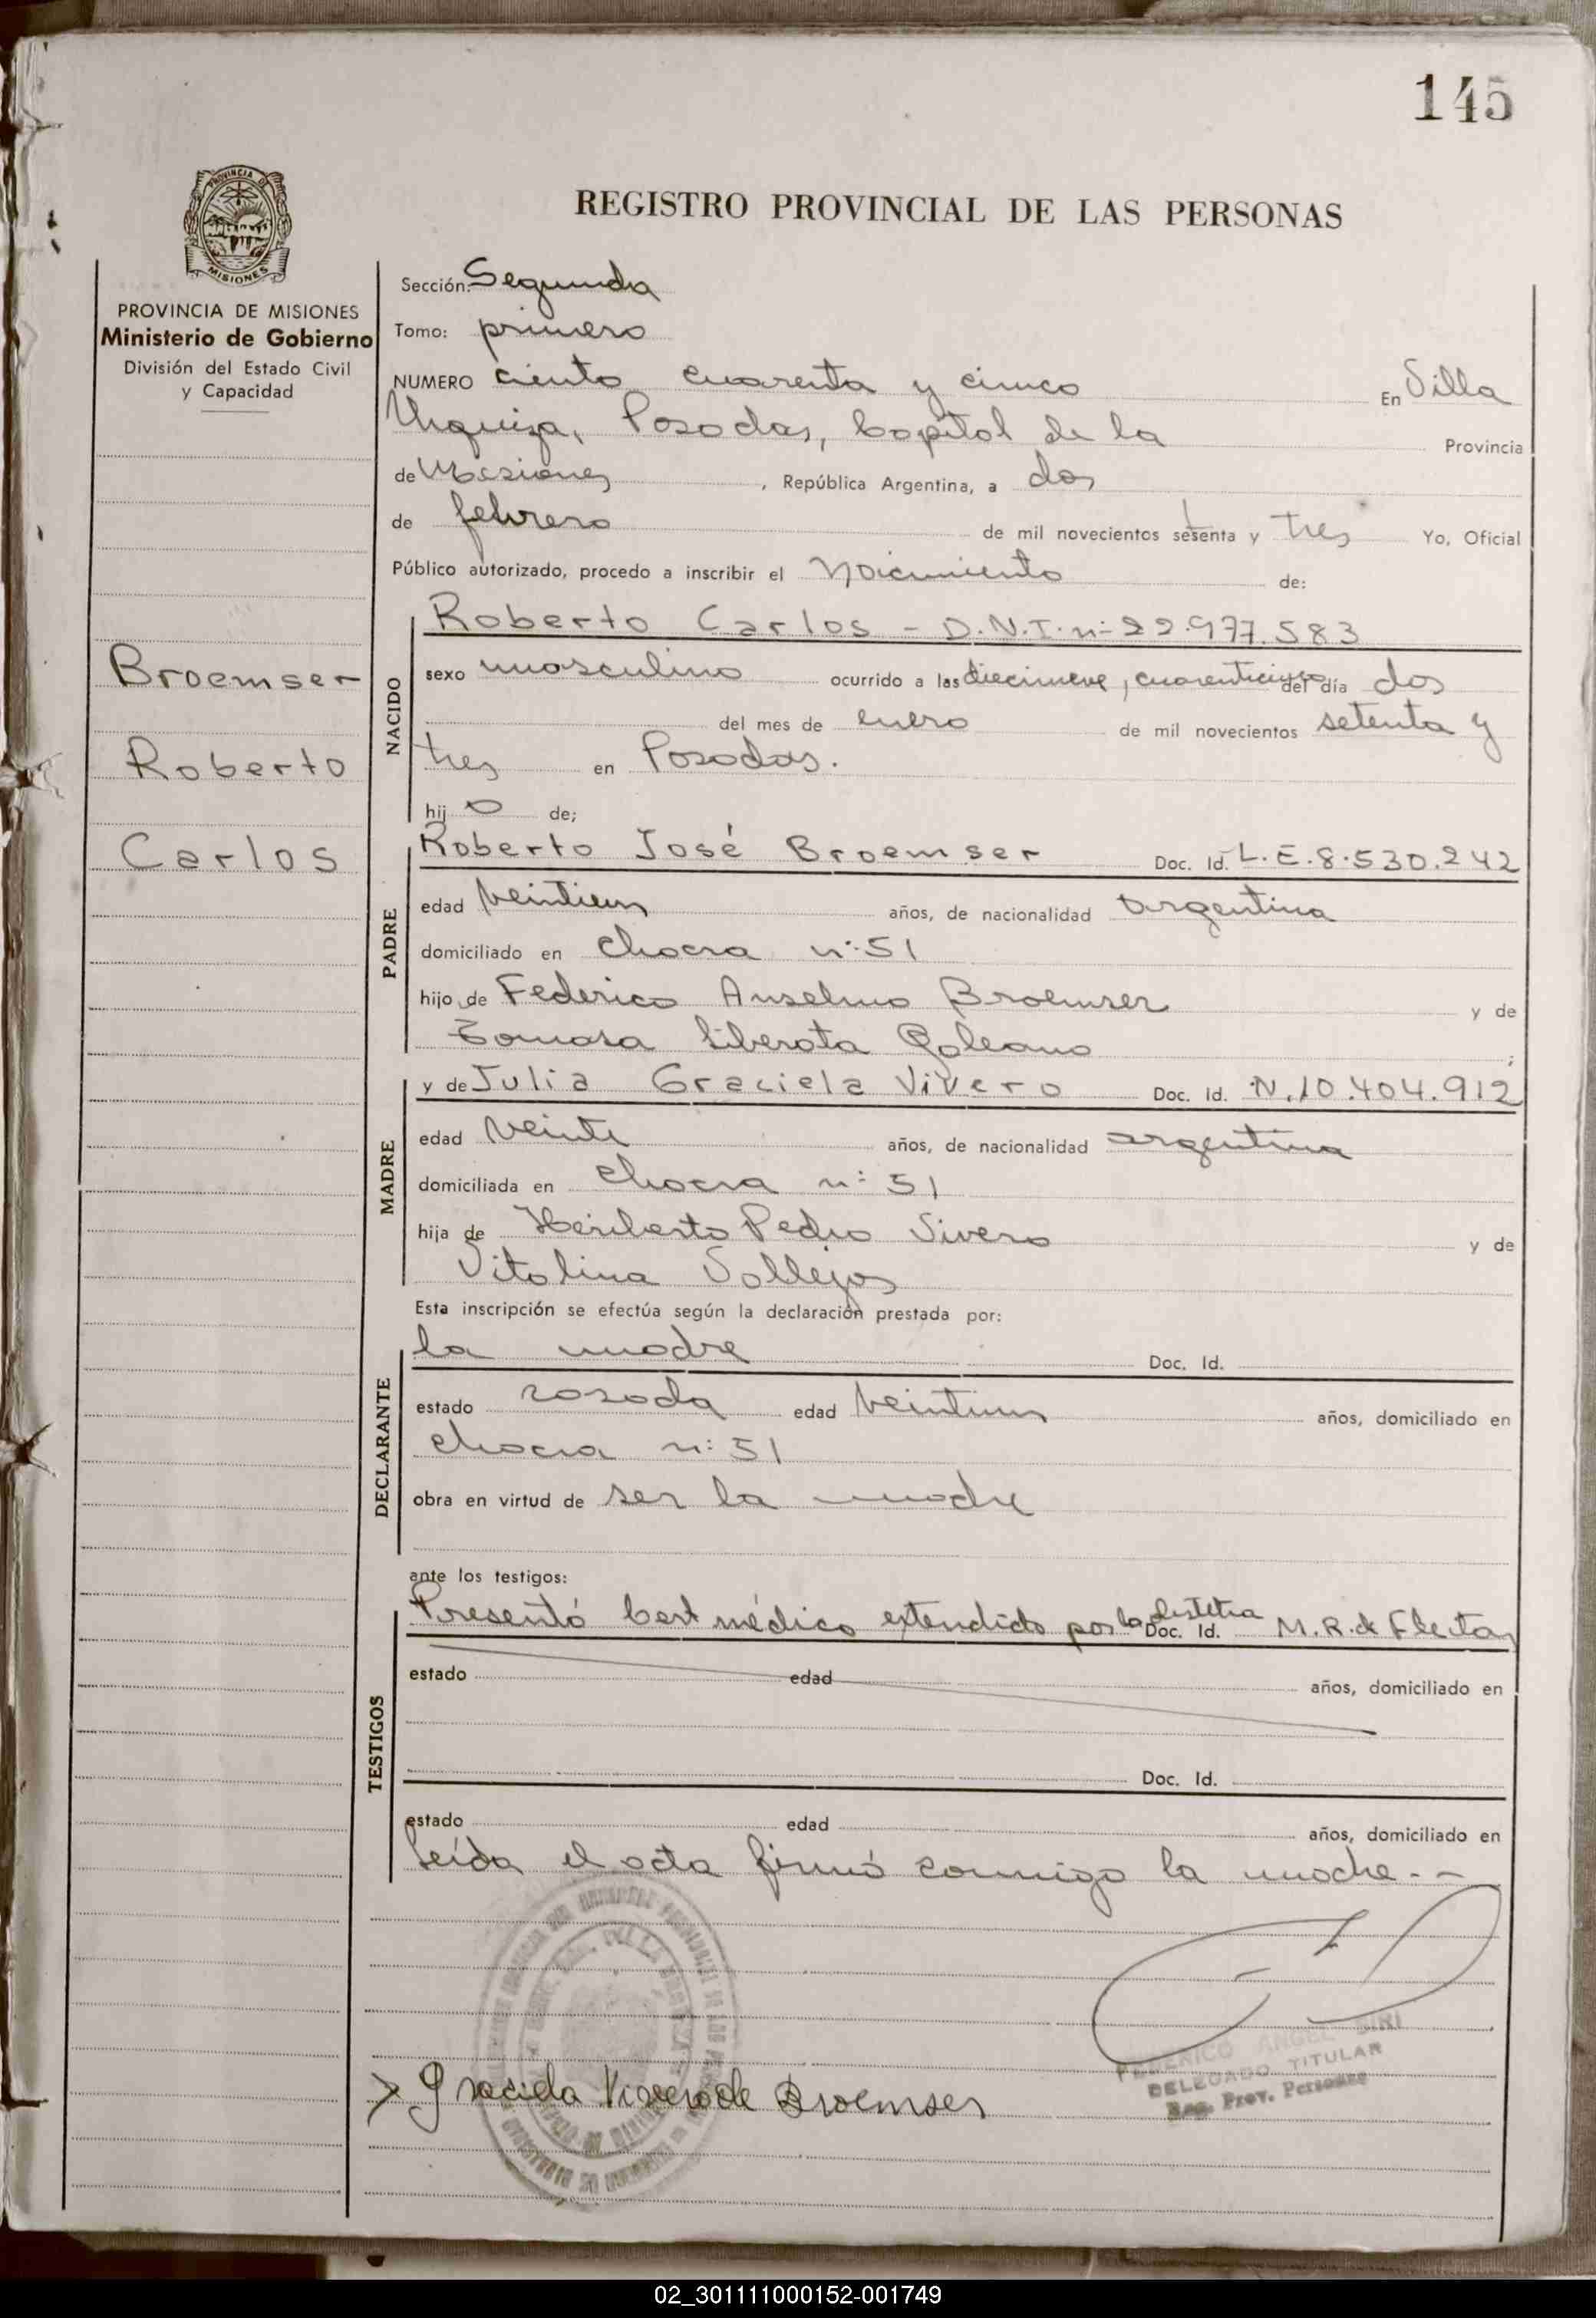 145
REGISTRO PROVINCIAL DE LAS PERSONAS
PROVINCIA DE
MISIONES
PROVINCIA DE MISIONES
Ministerio de Gobierno
División del Estado Civil
y Capacidad
Broemser
Roberto
Carlos
Sección: Segunda
Tomo: primero
NUMERO ciento cuarenta y cinco En Villa
Urquiza, Posadas, Capital de la Provincia
de Misiones, República Argentina, a dos
de febrero de mil novecientos setenta y tres Yo, Oficial
Público autorizado, procedo a inscribir el Nacimiento de:
NACIDO
Roberto Carlos - D.N.I. nº 22.977.583
sexo masculino ocurrido a las diecinueve, cuarenticinco del día dos
del mes de enero de mil novecientos setenta y
tres en Posadas.
hijo de;
PADRE
Roberto José Broemser Doc. Id. L.E. 8.530.242
edad veintiun años, de nacionalidad argentina
domiciliado en chacra nº 51
hijo de Federico Anselmo Broemser y de
Tomasa Liberata Galeano ;
MADRE
y de Julia Graciela Vivero Doc. Id. N.10.404.912
edad veinte años, de nacionalidad argentina
domiciliada en chacra nº 51
hija de Heriberto Pedro Vivero y de
Vitalina Vallejos
Esta inscripción se efectúa según la declaración prestada por:
DECLARANTE
la madre Doc. Id.
estado casada edad veintiun años, domiciliado en
chacra nº 51
obra en virtud de ser la madre
ante los testigos:
TESTIGOS
Presentó Cert médico extendido por la Doc. Id. M.R. de Fleitas
estado edad años, domiciliado en
Doc. Id.
estado edad años, domiciliado en
Leída el acta firmó conmigo la madre. -
FEDERICO ANGEL SIRI
DELEGADO TITULAR
Reg. Prov. Personas
Graciela Vivero de Broemser
02_301111000152-001749